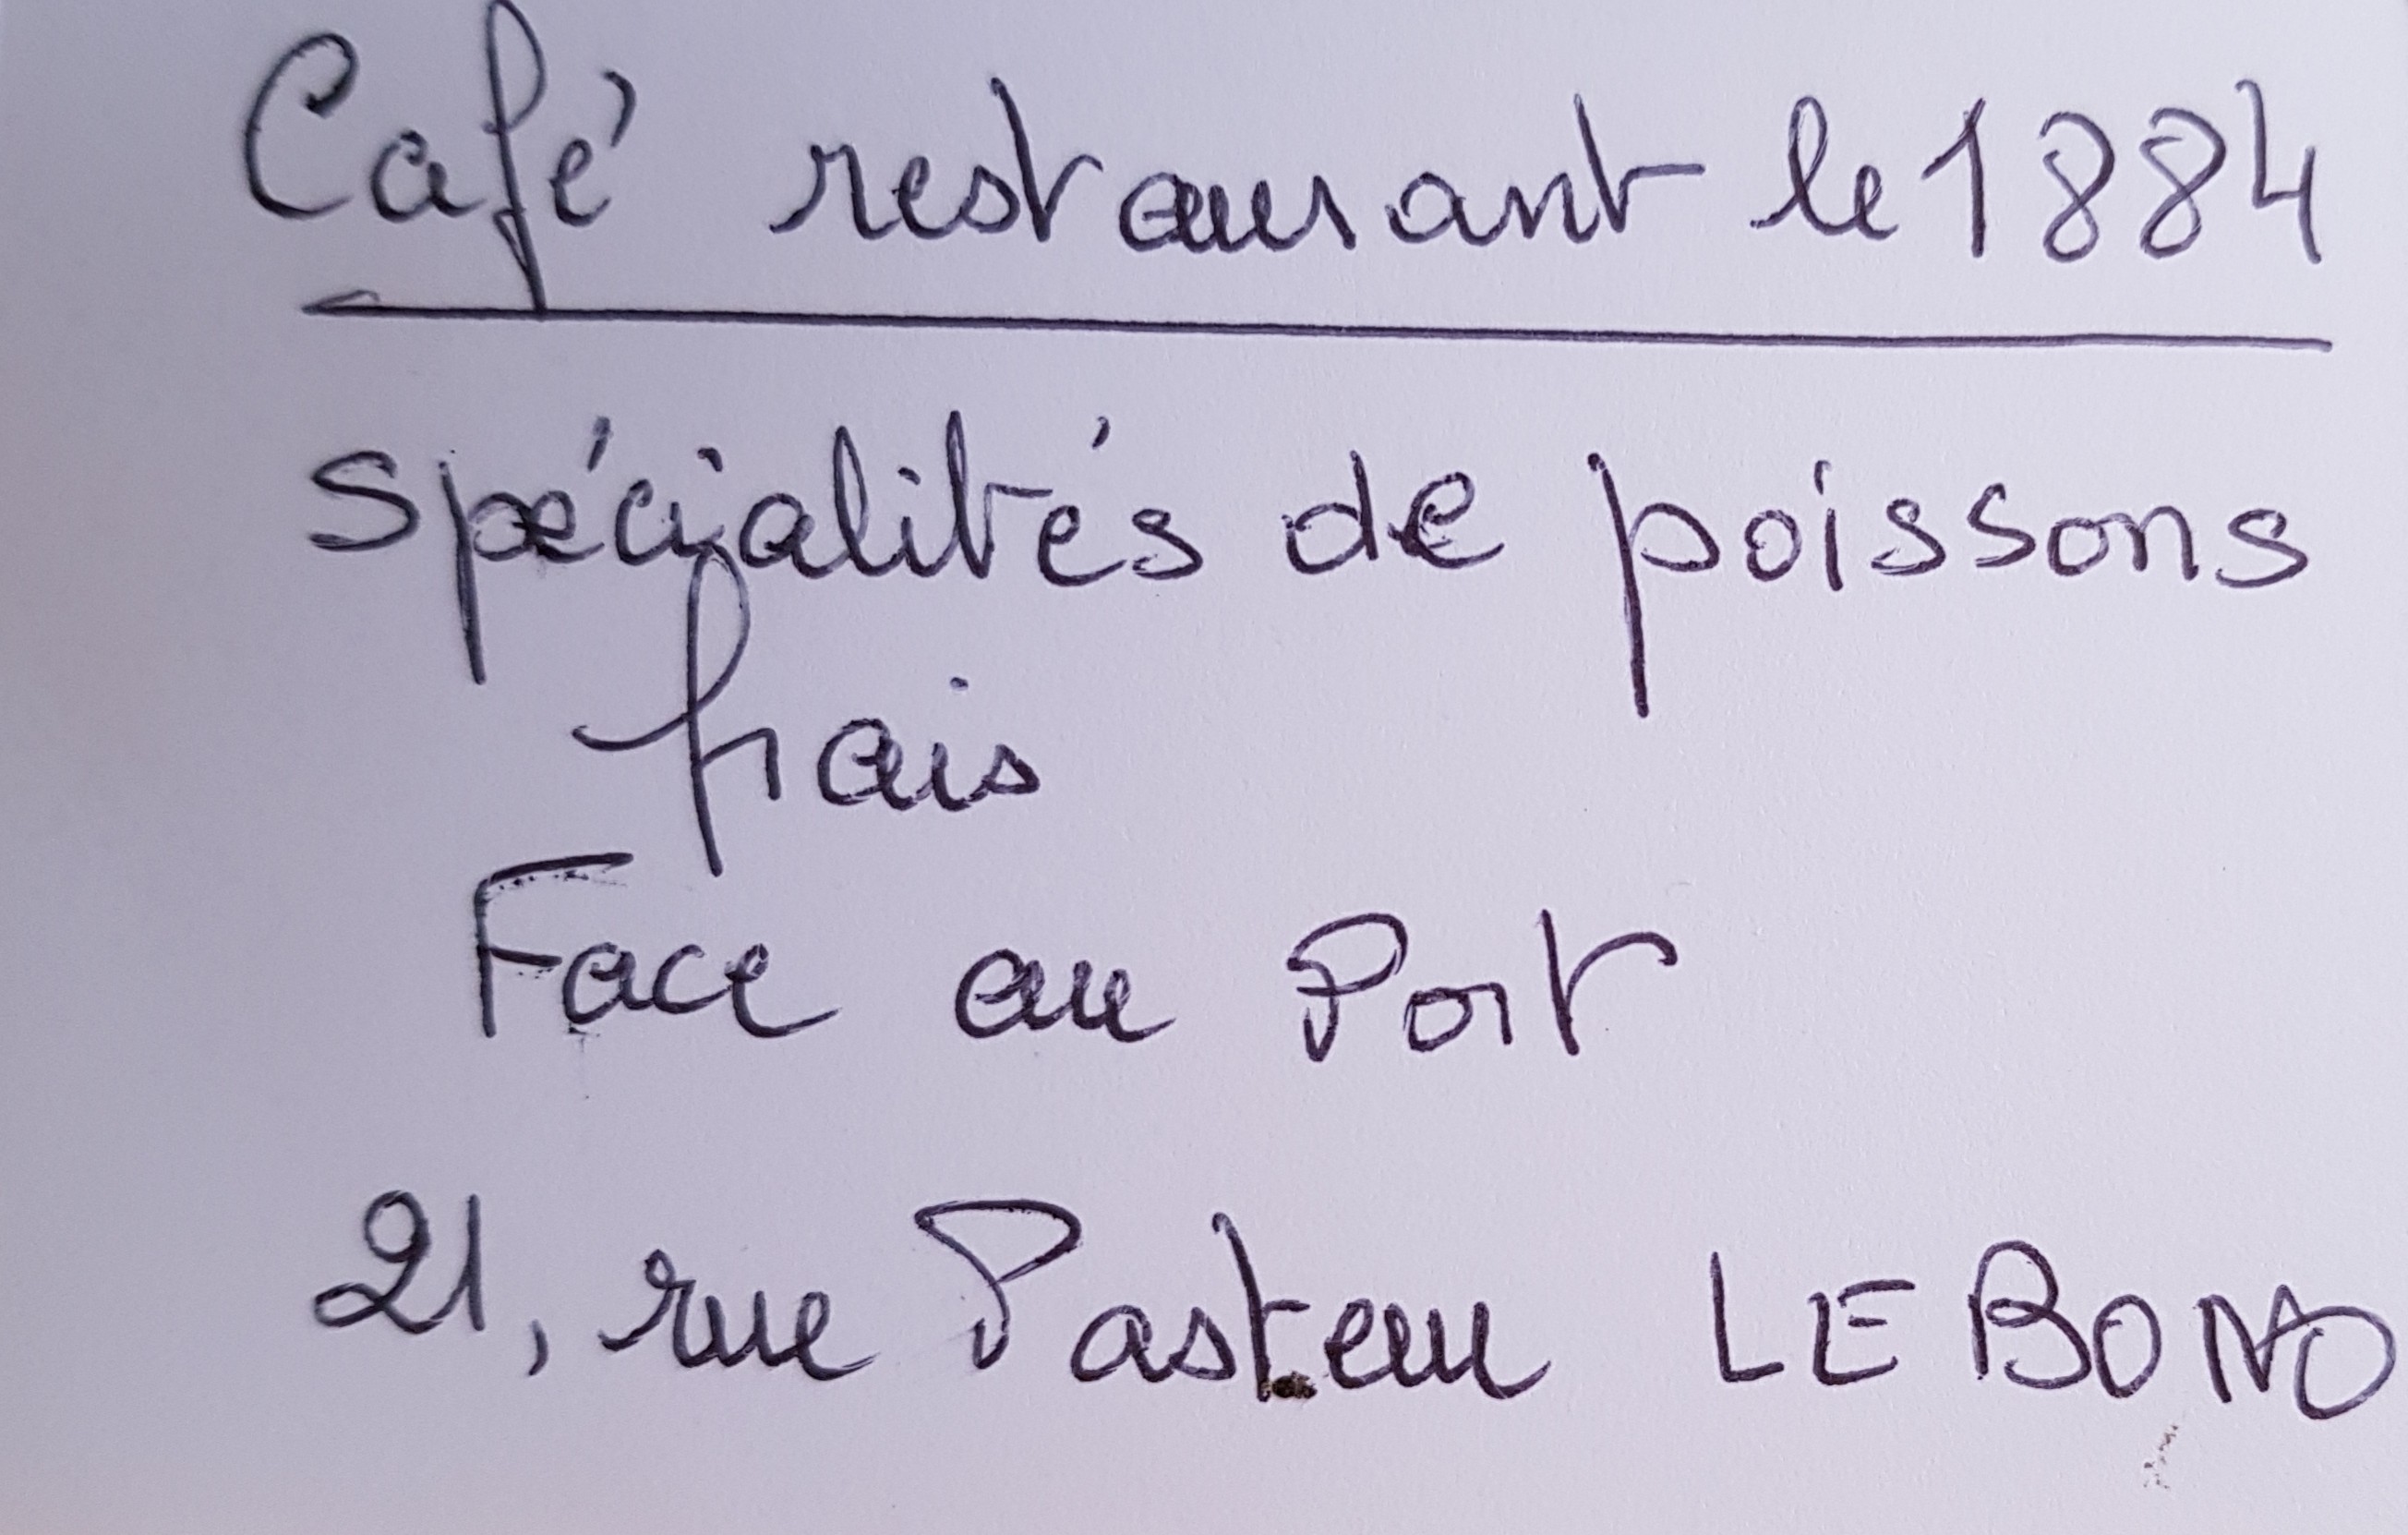 Café restaurant le 1884
spécialités de poissons
frais
Face au Port
21, rue Pasteur LE BONO